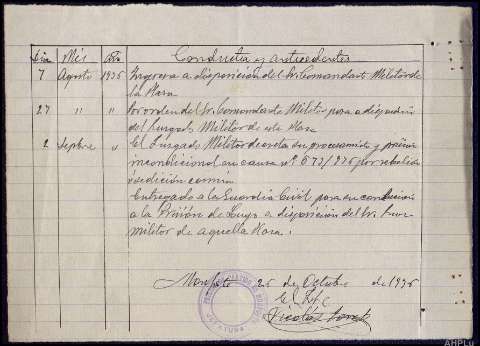 Dia Mes Año Conducta y antecedentes
7 Agosto 1936 Ingresa a disposición del Sr. Comandante Militar de
la Plaza
27 " " Por orden del Sr. Comandante Militar pasa a disposición
del Juzgado Militar de esta Plaza
2 Sepbre " El Juzgado Militar decreta su procesamiento y prisión
incondicional en causa nº 673/936 por rebelión
o sedición común
Entregado a la Guardia Civil para su conducción
a la Prisión de Lugo a disposición del Sr. Juez
militar de aquella Plaza.
Monforte 26 de Octubre de 1936
El
Nicolás
JEFATURA
AHPLu